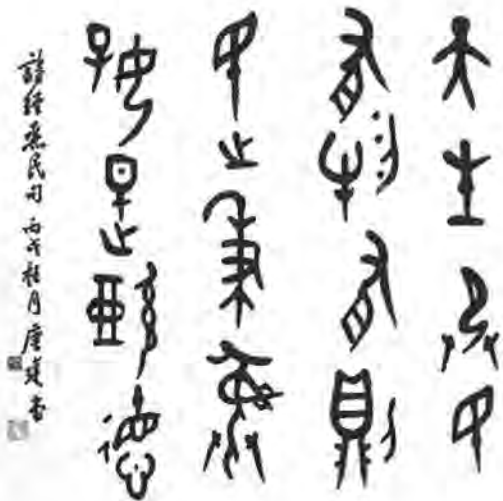 天生烝民
有物有則
民之秉彝
好是懿德
詩經烝民句 丙戌桂月 書